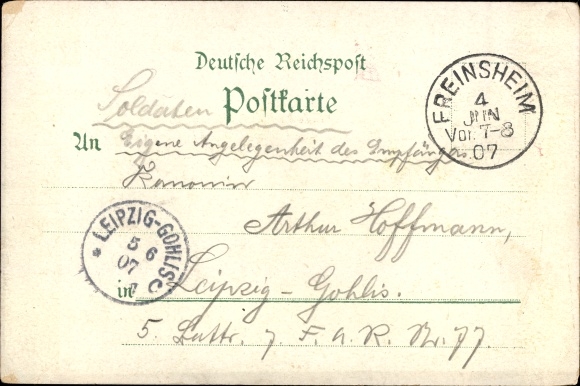 Deutsche Reichspost
Soldaten Postkarte
An Eigene Angelegenheit des Empfängers.
Kanonier
Arthur Hoffmann,
in Leipzig-Gohlis.
5. Battr. 7. F. a. R. Nr. 77.
FREINSHEIM
4
JUN
Vor. 7-8
07
* LEIPZIG-GOHLIS
5 6
07